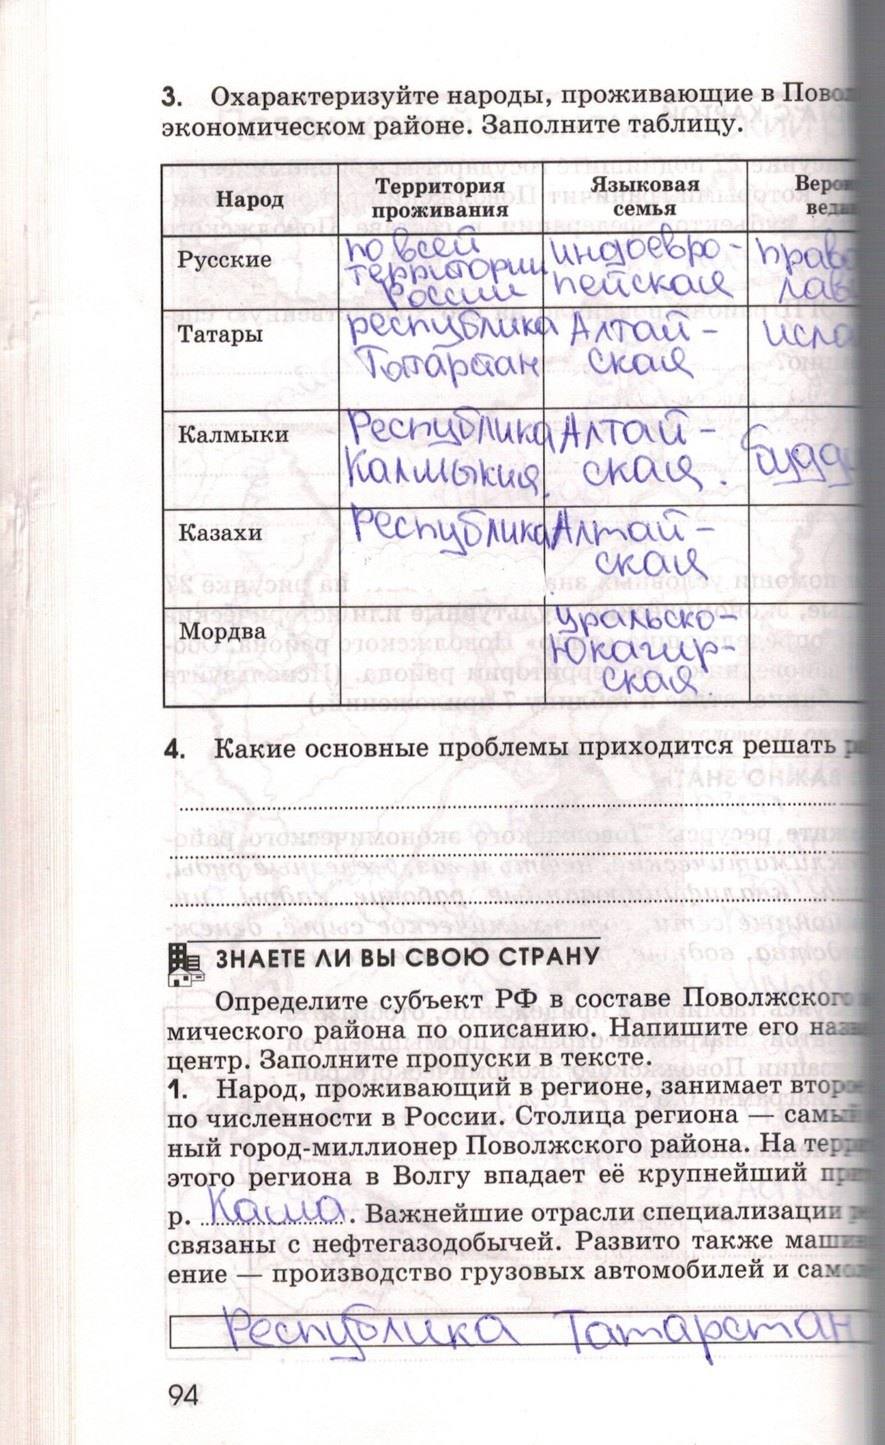 3. Охарактеризуйте народы, проживающие в Повол
экономическом районе. Заполните таблицу.
Народ
Территория
проживания
Языковая
семья
Веро
веда
Русские
по всей
территории
России
индоевро-
пейская
прав
лав
Татары
республика
Татарстан
Алтай-
ская
исла
Калмыки
Республика
Калмыкия.
Алтай-
ская.
будд
Казахи
Республика
Алтай-
ская
Мордва
уральско-
юкагир-
ская.
4. Какие основные проблемы приходится решать
ЗНАЕТЕ ЛИ ВЫ СВОЮ СТРАНУ
Определите субъект РФ в составе Поволжског
мического района по описанию. Напишите его назв
центр. Заполните пропуски в тексте.
1. Народ, проживающий в регионе, занимает второ
по численности в России. Столица региона — самый
ный город-миллионер Поволжского района. На терр
этого региона в Волгу впадает её крупнейший при
р. Кама. Важнейшие отрасли специализации
связаны с нефтегазодобычей. Развито также маши
ение — производство грузовых автомобилей и само
Республика Татарстан
94